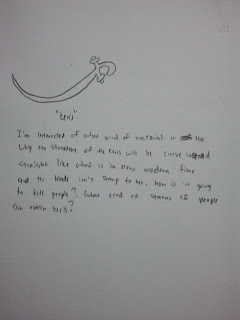 "Keris"
I'm interested of what kind of material is use.
Why the structure of the keris will be curve instead
straight like what is in many modern time
and the blade isn't sharp to me, how is it going
to kill people? What kind of status of people
can obtain keris?